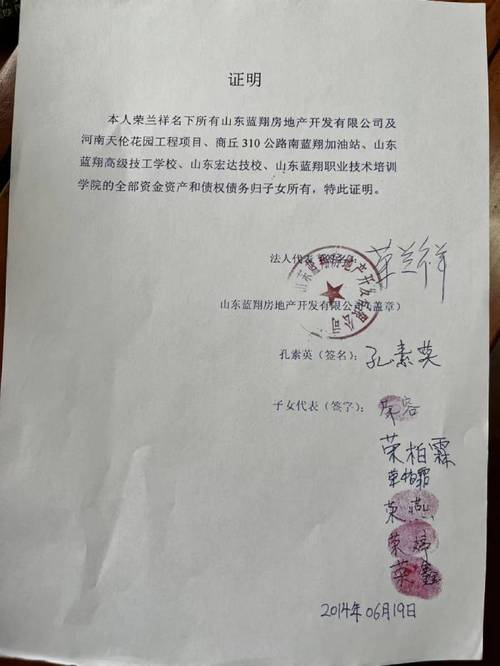 证明
本人荣兰祥名下所有山东蓝翔房地产开发有限公司及
河南天伦花园工程项目、商丘310公路南蓝翔加油站、山东
蓝翔高级技工学校、山东宏达技校、山东蓝翔职业技术培训
学院的全部资金资产和债权债务归子女所有，特此证明。
法人代表（签名）：荣兰祥
山东蓝翔房地产开发有限公司
山东蓝翔房地产开发有限公司（盖章）
孔素英（签名）：孔素英
子女代表（签字）：荣容
荣柏霖
荣柏霜
荣燕
荣婷
荣鑫
2014年06月19日